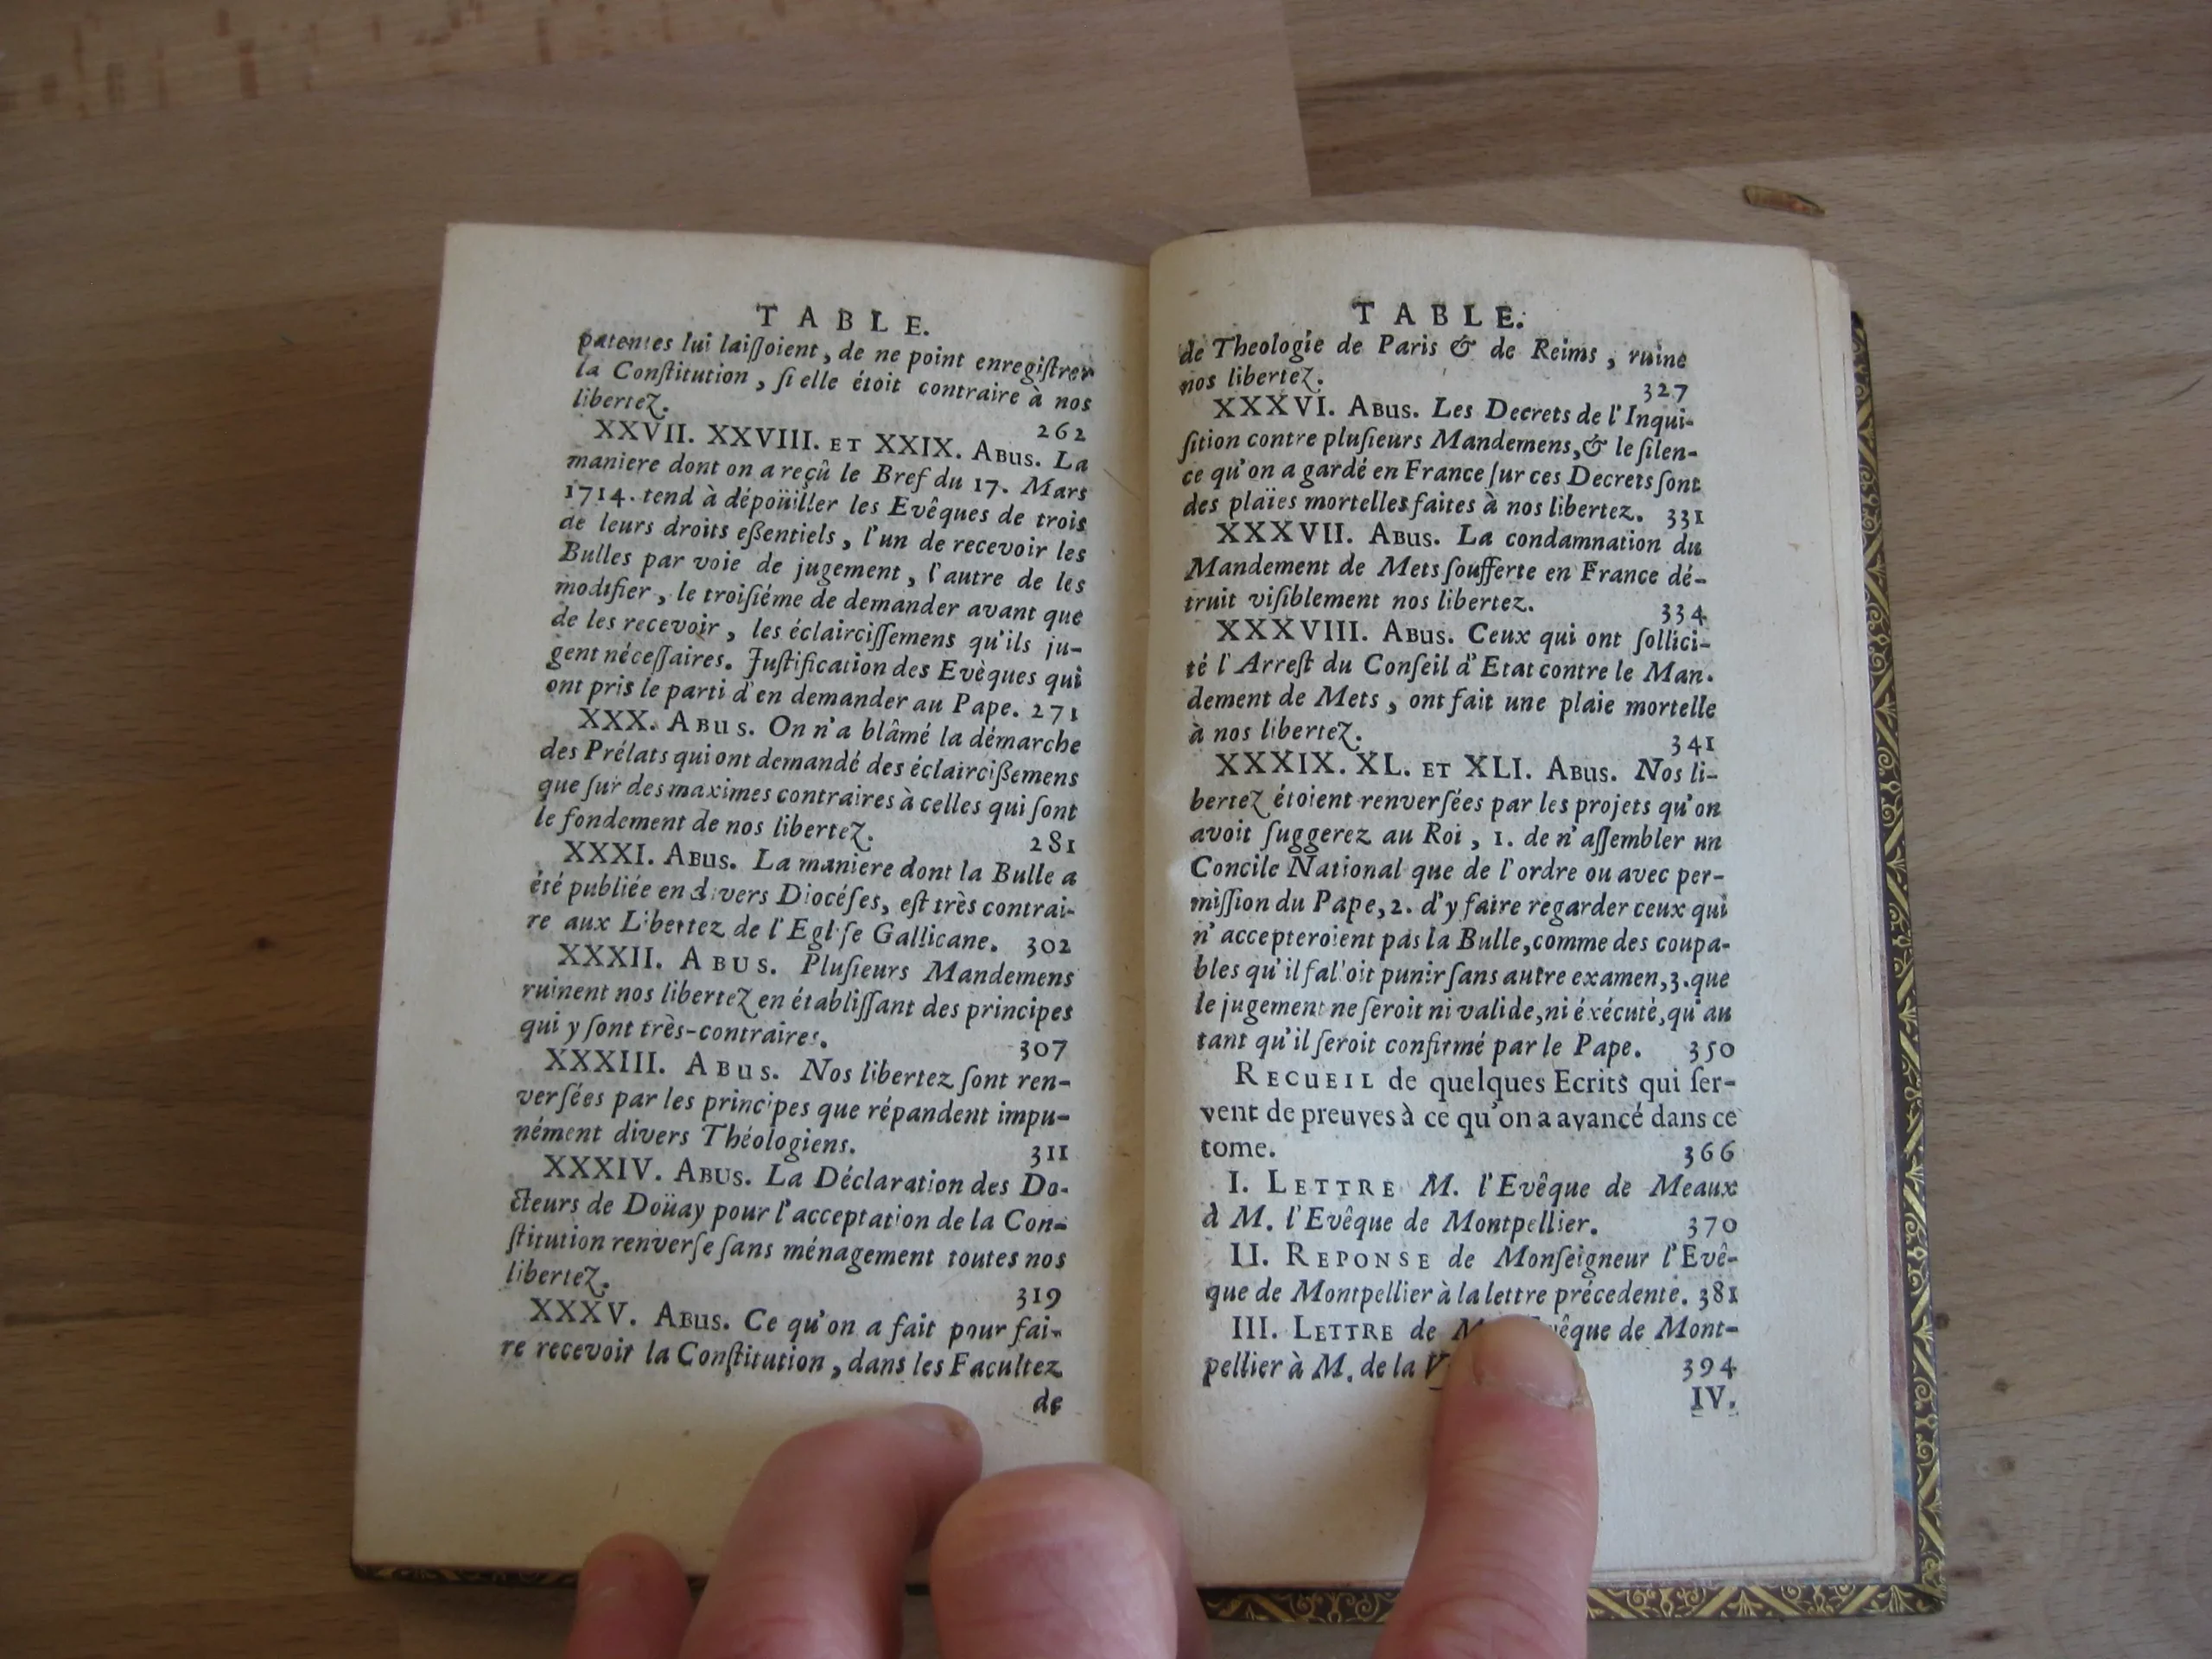 TABLE.
patentes lui laiſſoient, de ne point enregiſtrer
la Conſtitution, ſi elle étoit contraire à nos
libertez.
262
XXVII. XXVIII. ET XXIX. ABUS. La
maniere dont on a reçû le Bref du 17. Mars
1714. tend à dépoüiller les Evêques de trois
de leurs droits eßentiels, l'un de recevoir les
Bulles par voie de jugement, l'autre de les
modifier, le troiſiéme de demander avant que
de les recevoir, les éclairciſſemens qu'ils ju-
gent néceſſaires. Juſtification des Evèques qui
ont pris le parti d'en demander au Pape. 271
XXX. ABUS. On n'a blâmé la démarche
des Prélats qui ont demandé des éclaircißemens
que ſur des maximes contraires à celles qui ſont
le fondement de nos libertez.
281
XXXI. ABUS. La maniere dont la Bulle a
été publiée en divers Diocéſes, eſt très contrai-
re aux Libertez de l'Egliſe Gallicane. 302
XXXII. ABUS. Pluſieurs Mandemens
ruinent nos libertez en établiſſant des principes
qui y ſont très-contraires.
307
XXXIII. ABUS. Nos libertez ſont ren-
verſées par les principes que répandent impu-
nément divers Théologiens.
311
XXXIV. ABUS. La Déclaration des Do-
cteurs de Doüay pour l'acceptation de la Con-
ſtitution renverſe ſans ménagement toutes nos
libertez.
319
XXXV. ABUS. Ce qu'on a fait pour fai-
re recevoir la Conſtitution, dans les Facultez
de
TABLE.
de Theologie de Paris & de Reims, ruine
nos libertez.
327
XXXVI. ABUS. Les Decrets de l'Inqui-
ſition contre pluſieurs Mandemens, & le ſilen-
ce qu'on a gardé en France ſur ces Decrets ſont
des plaïes mortelles faites à nos libertez. 331
XXXVII. ABUS. La condamnation du
Mandement de Mets ſoufferte en France dé-
truit viſiblement nos libertez.
334
XXXVIII. ABUS. Ceux qui ont ſollici-
té l'Arreſt du Conſeil d'Etat contre le Man-
dement de Mets, ont fait une plaie mortelle
à nos libertez.
341
XXXIX. XL. ET XLI. ABUS. Nos li-
bertez étoient renverſées par les projets qu'on
avoit ſuggerez au Roi, 1. de n'aſſembler un
Concile National que de l'ordre ou avec per-
miſſion du Pape, 2. d'y faire regarder ceux qui
n'accepteroient pas la Bulle, comme des coupa-
bles qu'il fal'oit punir ſans autre examen, 3. que
le jugement ne ſeroit ni valide, ni éxécuté, qu'au
tant qu'il ſeroit confirmé par le Pape. 350
RECUEIL de quelques Ecrits qui ſer-
vent de preuves à ce qu'on a avancé dans ce
tome.
366
I. LETTRE M. l'Evêque de Meaux
à M. l'Evêque de Montpellier. 370
II. REPONSE de Monſeigneur l'Evê-
que de Montpellier à la lettre précedente. 381
III. LETTRE de de Mont-
pellier à M. de la 394
IV.